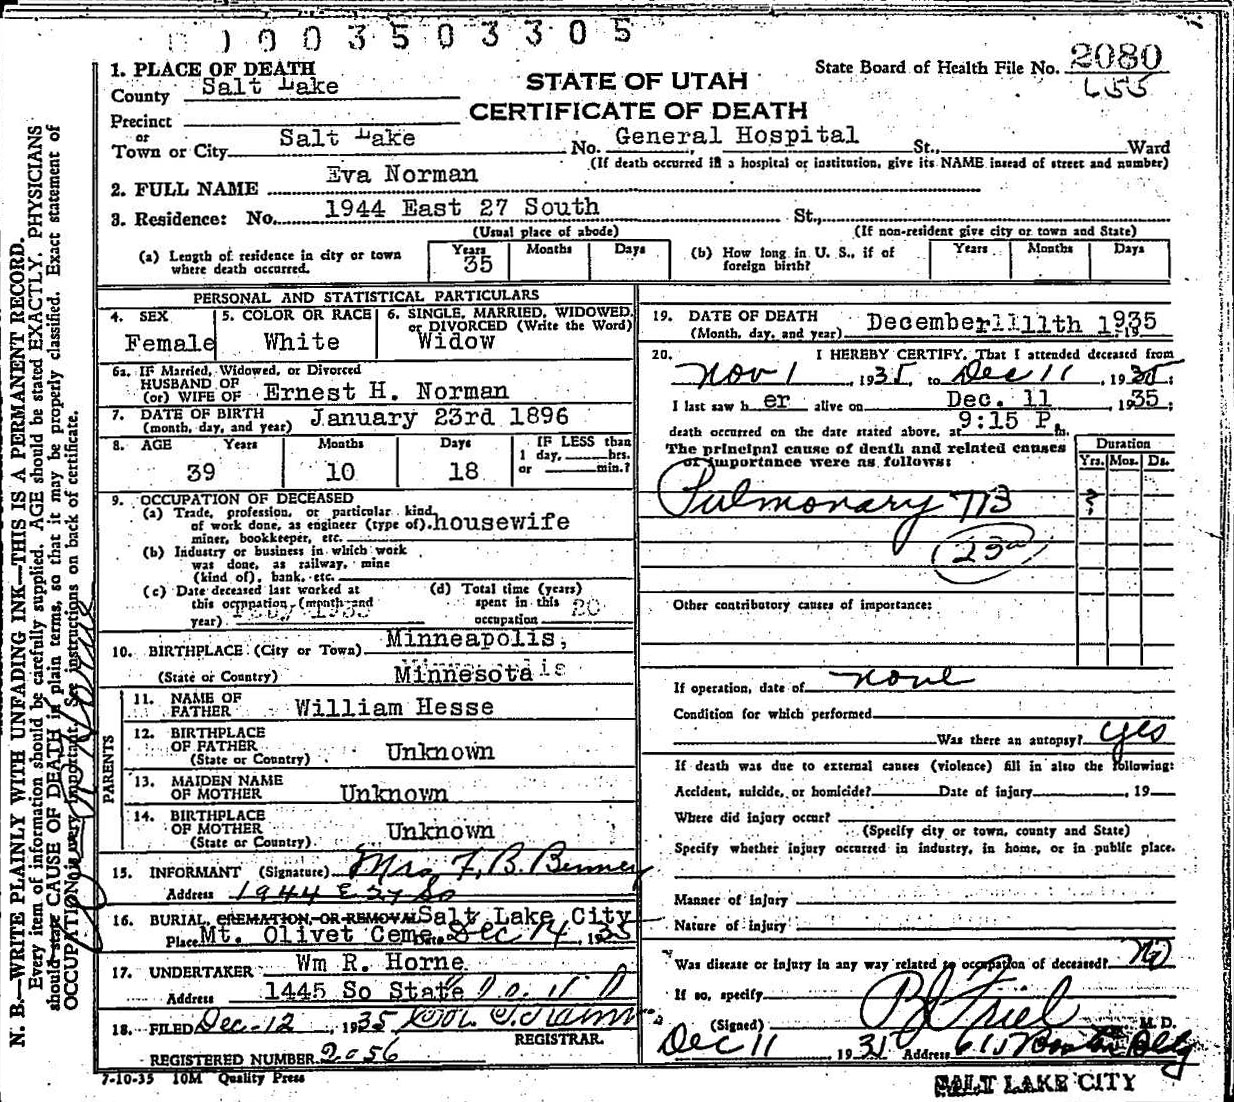 0 1 0 0 3 5 0 3 3 0 5
1. PLACE OF DEATH
STATE OF UTAH
CERTIFICATE OF DEATH
State Board of Health File No. 2080
655
County Salt Lake
Precinct
or
Town or City Salt Lake No. General Hospital St., Ward
(If death occurred in a hospital or institution, give its NAME insead of street and number)
2. FULL NAME Eva Norman
3. Residence: No. 1944 East 27 South St.,
(Usual place of abode) (If non-resident give city or town and State)
(a) Length of residence in city or town where death occurred. Years 35 Months Days
(b) How long in U. S., if of foreign birth? Years Months Days
PERSONAL AND STATISTICAL PARTICULARS
4. SEX Female
5. COLOR OR RACE White
6. SINGLE, MARRIED, WIDOWED, or DIVORCED (Write the Word) Widow
6a. IF Married, Widowed, or Divorced
HUSBAND OF
(or) WIFE OF Ernest H. Norman
7. DATE OF BIRTH
(month, day, and year) January 23rd 1896
8. AGE Years 39 Months 10 Days 18
IF LESS than
1 day, hrs.
or min.?
9. OCCUPATION OF DECEASED
(a) Trade, profession, or particular kind
of work done, as engineer (type of). housewife
miner, bookkeeper, etc.
(b) Industry or business in which work
was done, as railway, mine
(kind of), bank, etc.
(c) Date deceased last worked at
this occupation, (month and
year) 1935
(d) Total time (years)
spent in this
occupation 20
10. BIRTHPLACE (City or Town) Minneapolis,
(State or Country) Minnesota
PARENTS
11. NAME OF
FATHER William Hesse
12. BIRTHPLACE
OF FATHER
(State or Country) Unknown
13. MAIDEN NAME
OF MOTHER Unknown
14. BIRTHPLACE
OF MOTHER
(State or Country) Unknown
15. INFORMANT (Signature) Mrs F, B. Benney
Address 1944 E 27 So
16. BURIAL, CREMATION, OR REMOVAL Salt Lake City
Place Mt. Olivet Ceme Date Dec 14, 1935
17. UNDERTAKER Wm R. Horne
Address 1445 So State
18. FILED Dec-12, 1935
REGISTRAR.
REGISTERED NUMBER 2056
7-10-35 10M Quality Press
19. DATE OF DEATH
(Month, day, and year) December 11th 1935
20. I HEREBY CERTIFY, That I attended deceased from
Nov 1, 1935, to Dec 11, 1935;
I last saw her alive on Dec. 11, 1935;
death occurred on the date stated above, at 9:15 P m.
The principal cause of death and related causes
of importance were as follows:
Duration
Yrs. Mos. Ds.
Pulmonary TB ?
23a
Other contributory causes of importance:
If operation, date of none
Condition for which performed
Was there an autopsy? yes
If death was due to external causes (violence) fill in also the following:
Accident, suicide, or homicide? Date of injury , 19
Where did injury occur?
(Specify city or town, county and State)
Specify whether injury occurred in industry, in home, or in public place.
Manner of injury
Nature of injury
Was disease or injury in any way related to occupation of deceased? No
If so, specify
(Signed) M. D.
Dec 11, 1935 Address 615 Boston Bldg
SALT LAKE CITY
N. B.—WRITE PLAINLY WITH UNFADING INK—THIS IS A PERMANENT RECORD.
Every item of information should be carefully supplied. AGE should be stated EXACTLY. PHYSICIANS
should state CAUSE OF DEATH in plain terms, so that it may be properly classified. Exact statement of
OCCUPATION is very important. See instructions on back of certificate.